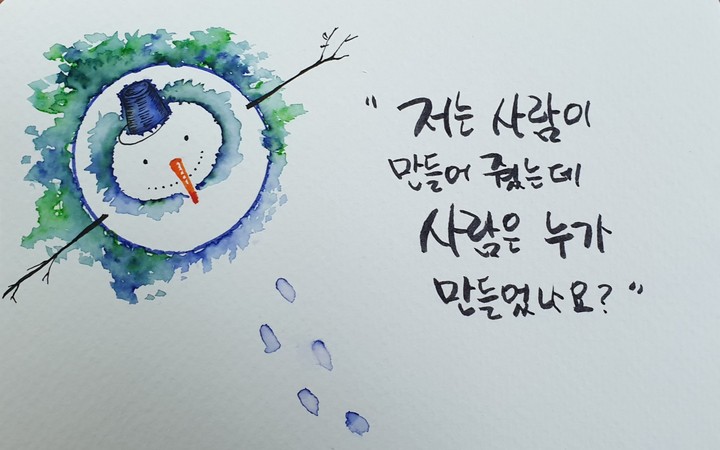 " 저는 사람이
만들어 줬는데
사람은 누가
만들었나요? "